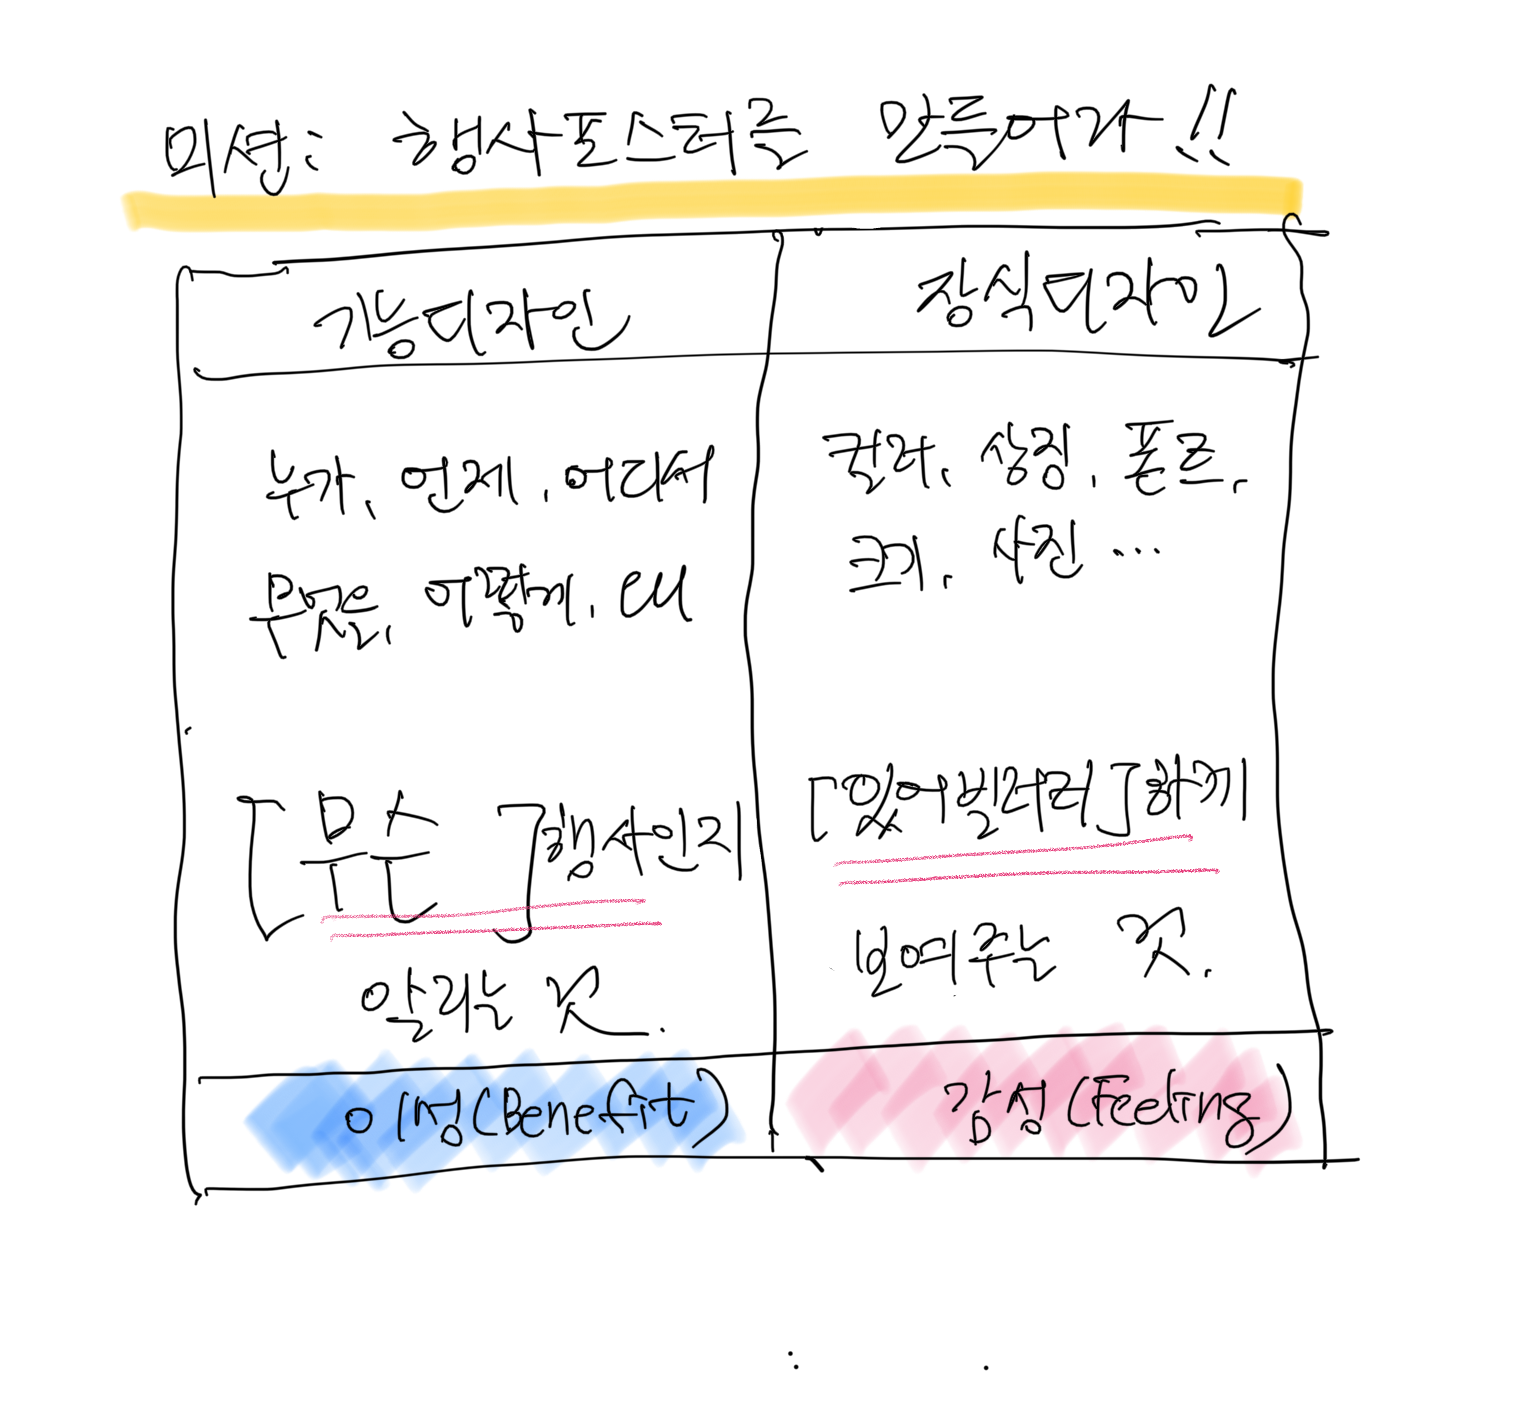 미션: 행사포스터를 만들어라!!
기능디자인
장식디자인
누가, 언제, 어디서
무엇을, 어떻게, etc
컬러, 상징, 폰트,
크기, 사진 ...
[무슨 ]행사인지
알리는 것.
[있어빌러티]하게
보여주는 것.
이성(Benefit)
감성(Feeling)